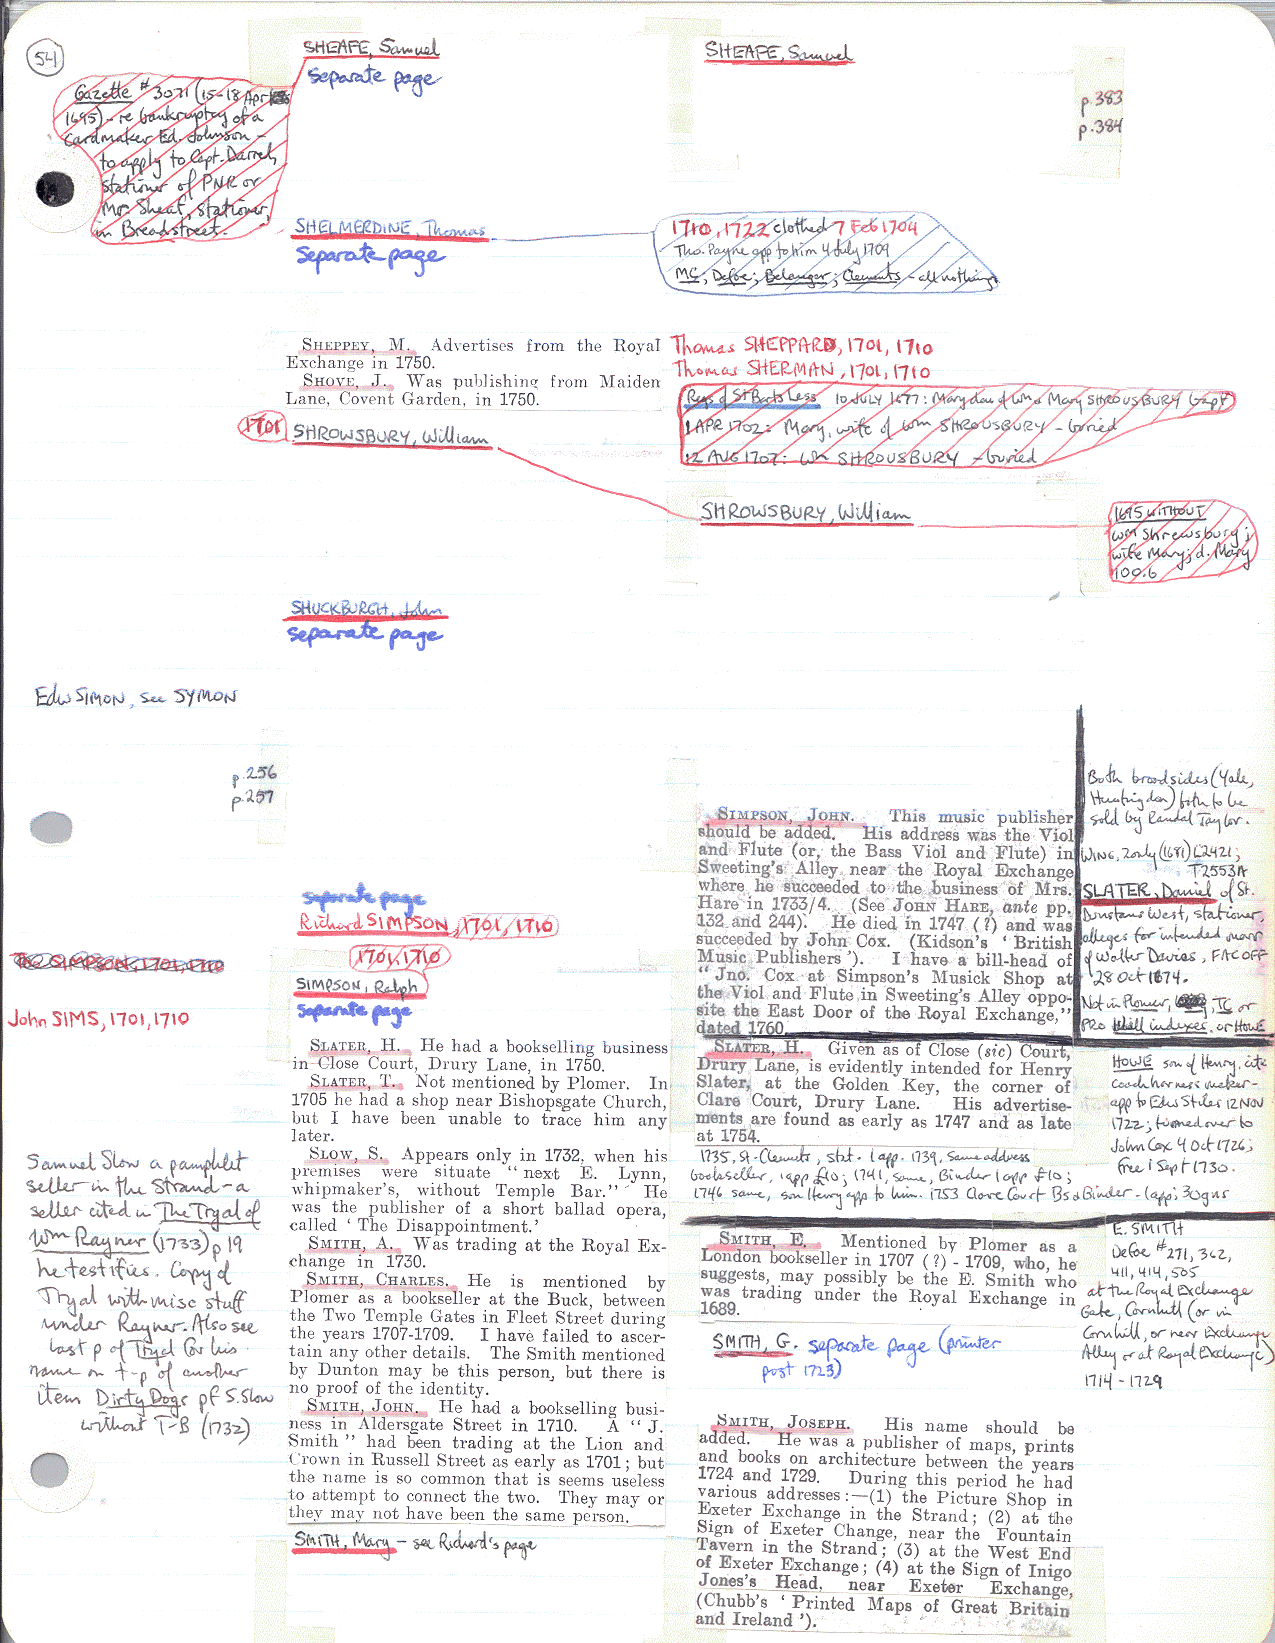 54
SHEAFE, Samuel
Separate page
SHEAFE, Samuel
p.383
p.384
Gazette #3071 (15-18 Apr
1695) - re bankruptcy of a
Cardmaker Ed. Johnson -
to apply to Capt. Darrel,
Stationer of PNR or
Mr Sheaf, Stationer,
in Breadstreet.
SHELMERDINE, Thomas
Separate page
1710, 1722 clothed 7 Feb 1704
Tho. Payne app to him 4 July 1709
MC, Defoe; Belanger; Clements - all nothing
SHEPPEY, M. Advertises from the Royal
Exchange in 1750.
SHOVE, J. Was publishing from Maiden
Lane, Covent Garden, in 1750.
Thomas SHEPPARD, 1701, 1710
Thomas SHERMAN, 1701, 1710
Regs of St Barts Less 10 JULY 1677: Mary dau of Wm & Mary SHROUSBURY bapt
1 APR 1702: Mary, wife of Wm SHROUSBURY - buried
12 AUG 1707: Wm SHROUSBURY - buried
1701 SHROWSBURY, William
SHROWSBURY, William
1695 WITHOUT
Wm Shrewsbury;
wife Mary; d. Mary
100.6
SHUCKBURGH, John
Separate page
Edw SIMON, see SYMON
p.256
p.257
separate page
Richard SIMPSON, 1701, 1710
1701, 1710
SIMPSON, Ralph
Separate page
Tho SIMPSON, 1701, 1710
John SIMS, 1701, 1710
SLATER, H. He had a bookselling business
in Close Court, Drury Lane, in 1750.
SLATER, T. Not mentioned by Plomer. In
1705 he had a shop near Bishopsgate Church,
but I have been unable to trace him any
later.
SLOW, S. Appears only in 1732, when his
premises were situate " next E. Lynn,
whipmaker's, without Temple Bar." He
was the publisher of a short ballad opera,
called ' The Disappointment.'
SMITH, A. Was trading at the Royal Ex-
change in 1730.
SMITH, CHARLES. He is mentioned by
Plomer as a bookseller at the Buck, between
the Two Temple Gates in Fleet Street during
the years 1707-1709. I have failed to ascer-
tain any other details. The Smith mentioned
by Dunton may be this person, but there is
no proof of the identity.
SMITH, JOHN. He had a bookselling busi-
ness in Aldersgate Street in 1710. A " J.
Smith " had been trading at the Lion and
Crown in Russell Street as early as 1701 ; but
the name is so common that is seems useless
to attempt to connect the two. They may or
they may not have been the same person.
SMITH, Mary - see Richard's page
Samuel Slow a pamphlet
seller in the Strand - a
seller cited in The Tryal of
Wm Rayner (1733) p 19
he testifies. Copy of
Tryal with misc stuff
under Rayner. Also see
last p of Tryal for his
name on t-p of another
item Dirty Dogs pf S. Slow
without T-B (1732)
SIMPSON, JOHN. This music publisher
should be added. His address was the Viol
and Flute (or, the Bass Viol and Flute) in
Sweeting's Alley, near the Royal Exchange
where he succeeded to the business of Mrs.
Hare in 1733/4. (See JOHN HARE, ante pp.
132 and 244). He died in 1747 (?) and was
succeeded by John Cox. (Kidson's ' British
Music Publishers '). I have a bill-head of
" Jno. Cox at Simpson's Musick Shop at
the Viol and Flute in Sweeting's Alley oppo-
site the East Door of the Royal Exchange,"
dated 1760.
SLATER, H. Given as of Close (sic) Court,
Drury Lane, is evidently intended for Henry
Slater, at the Golden Key, the corner of
Clare Court, Drury Lane. His advertise-
ments are found as early as 1747 and as late
at 1754.
1735, St-Clements, stat. 1 app. 1739, same address
bookseller, 1 app £10; 1741, same, Binder 1 app £10;
1746 same, son Henry app to him. 1753 Clare Court Bs & Binder - 1 app; 30 gns
SMITH, E. Mentioned by Plomer as a
London bookseller in 1707 (?) - 1709, who, he
suggests, may possibly be the E. Smith who
was trading under the Royal Exchange in
1689.
SMITH, G. separate page (printer
post 1723)
SMITH, JOSEPH. His name should be
added. He was a publisher of maps, prints
and books on architecture between the years
1724 and 1729. During this period he had
various addresses :—(1) the Picture Shop in
Exeter Exchange in the Strand ; (2) at the
Sign of Exeter Change, near the Fountain
Tavern in the Strand ; (3) at the West End
of Exeter Exchange ; (4) at the Sign of Inigo
Jones's Head, near Exeter Exchange,
(Chubb's ' Printed Maps of Great Britain
and Ireland ').
Both broadsides (Yale,
Huntingdon) both to be
sold by Randal Taylor.
WING, 2 only (1681) L2421;
T2553A
SLATER, Daniel of St.
Dunstans West, stationer,
alleges for intended marr
of Walter Davies, FACOFF
28 Oct 1674.
Not in Plomer, TC or
PRO indexes, or Howe
HOWE son of Henry, citz
coach harness maker -
app to Edw Stiles 12 NOV
1722; turned over to
John Cox 4 Oct 1726;
free 1 Sept 1730.
E. SMITH
Defoe #271, 362,
411, 414, 505
at the Royal Exchange
Gate, Cornhill (or in
Cornhill, or near Exchange
Alley or at Royal Exchange)
1714 - 1729